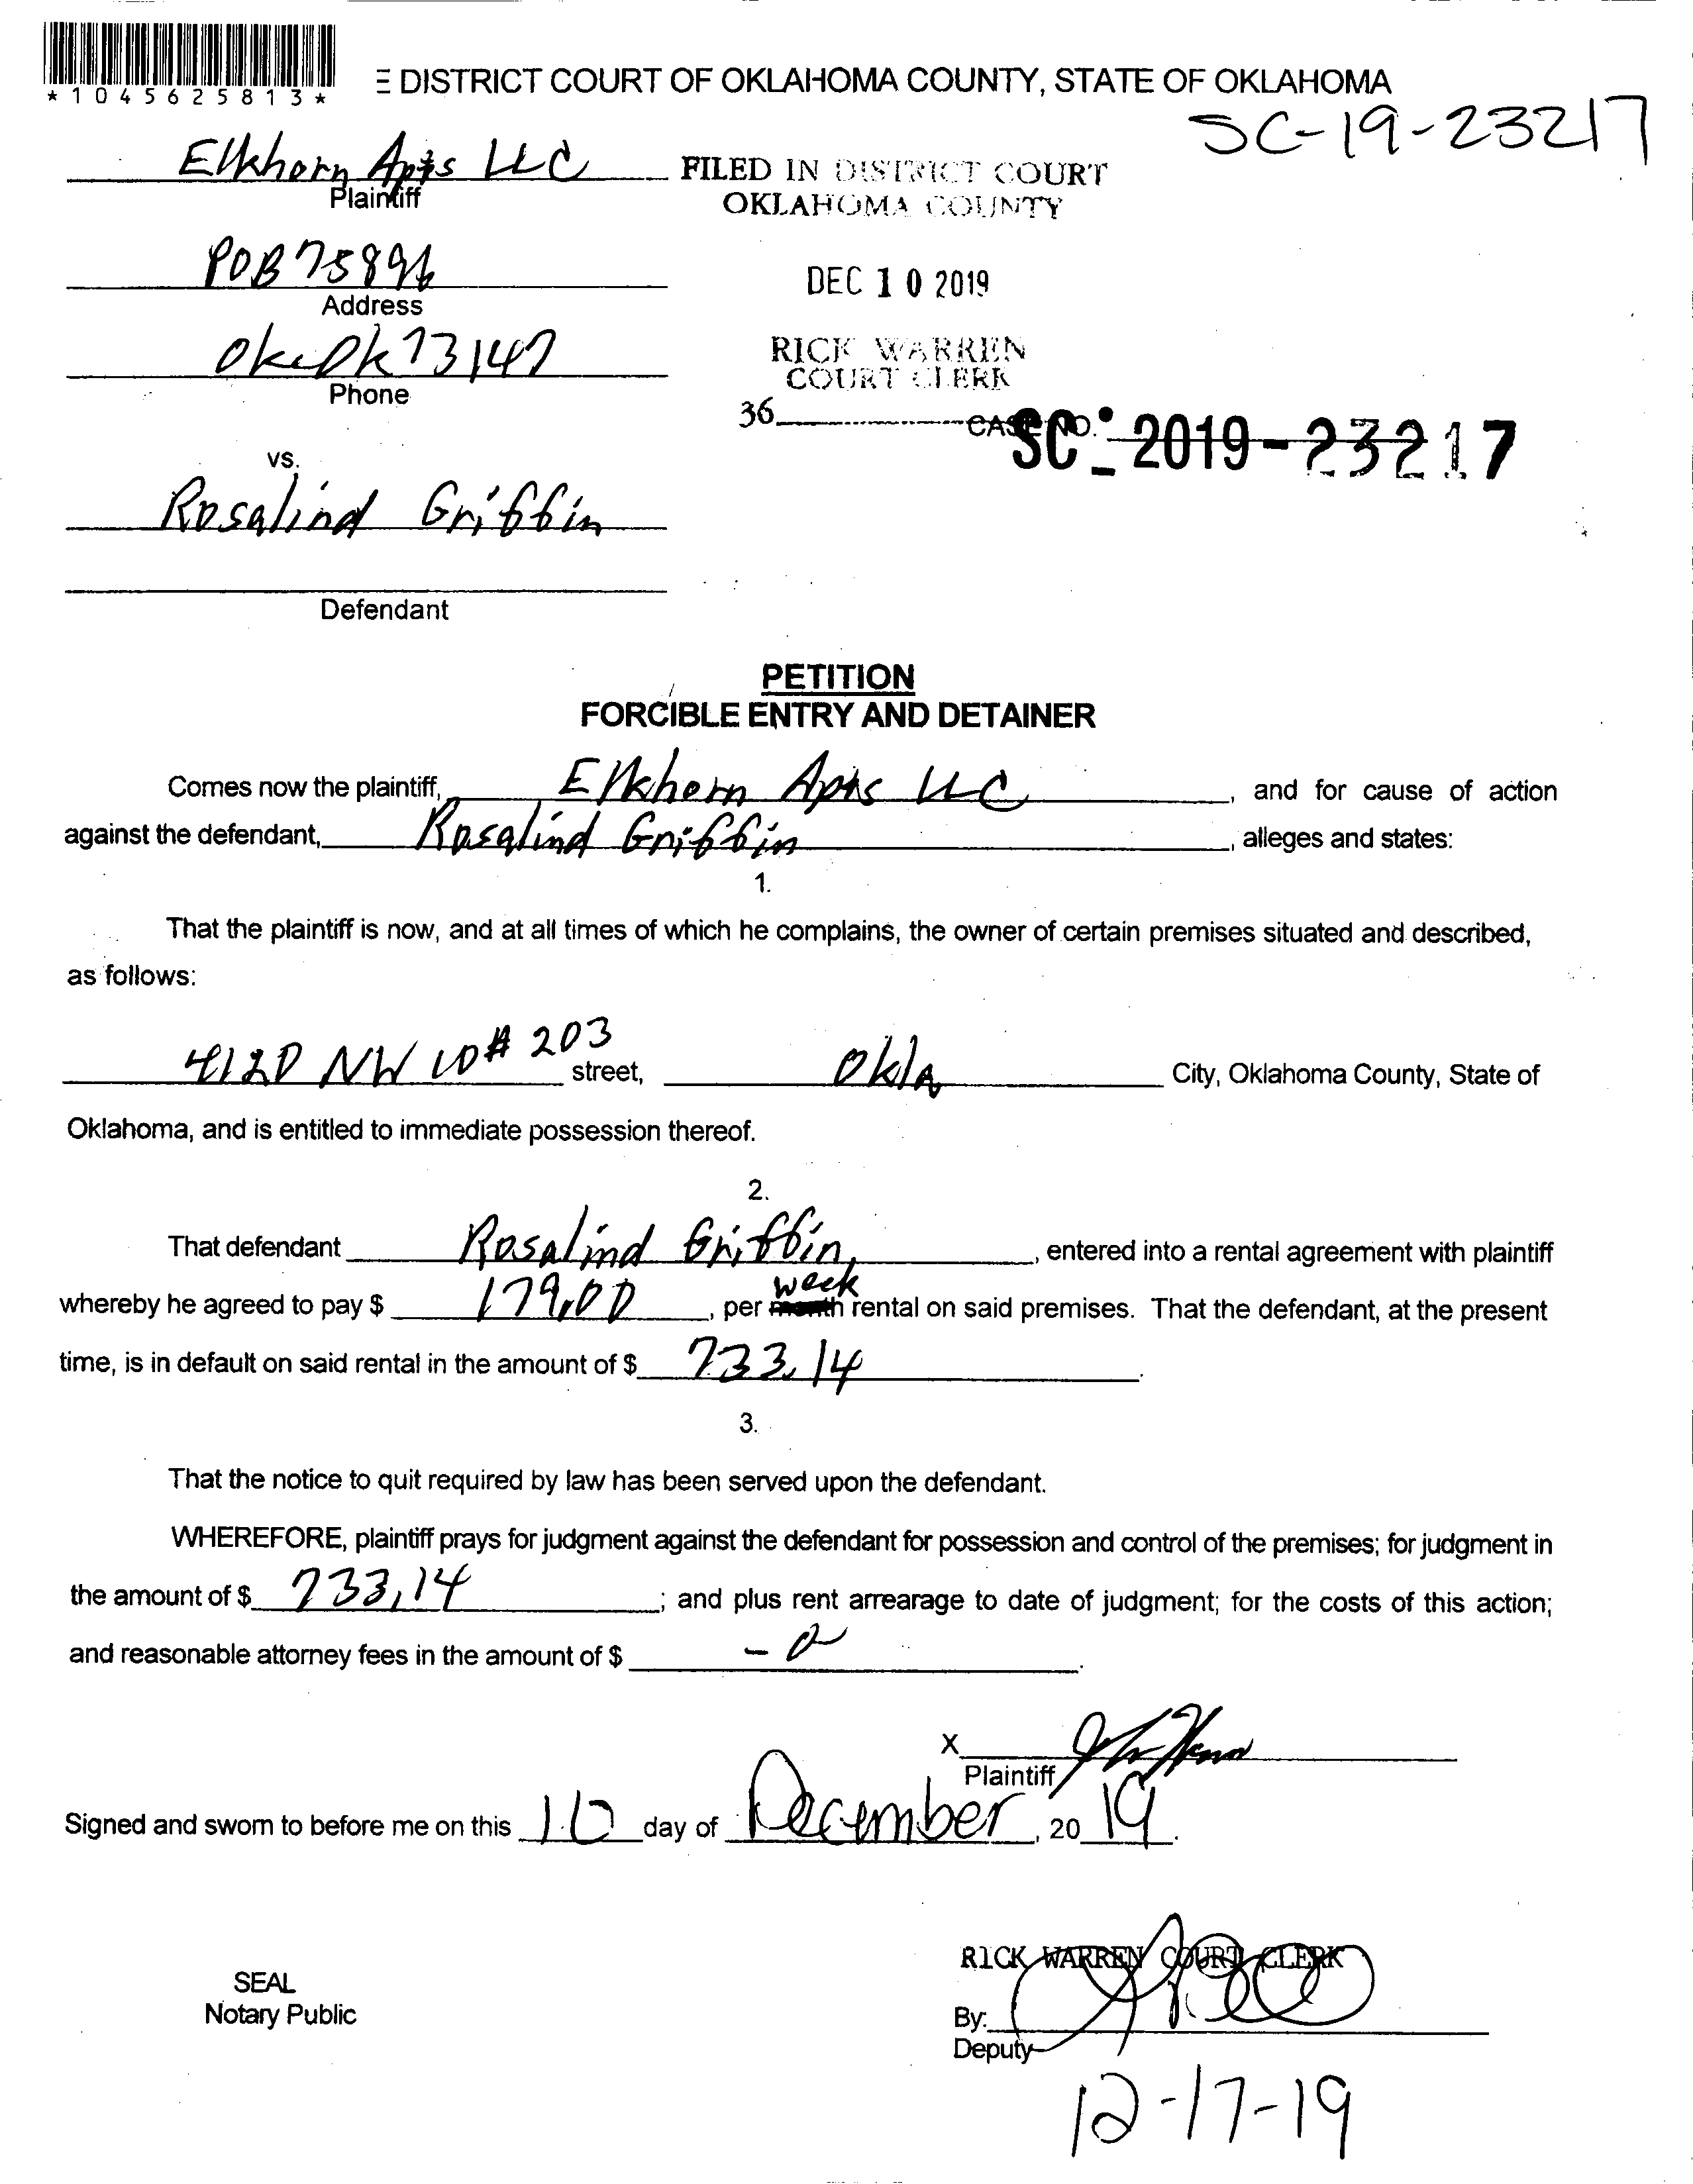 *1045625813*
E DISTRICT COURT OF OKLAHOMA COUNTY, STATE OF OKLAHOMA
SC-19-23217
Elkhorn Apts LLC
Plaintiff
FILED IN DISTRICT COURT
OKLAHOMA COUNTY
POB 75896
Address
DEC 10 2019
Okc Ok 73147
Phone
RICK WARREN
COURT CLERK
36
CASE NO. SC-2019-23217
vs.
Rosalind Griffin
Defendant
PETITION
FORCIBLE ENTRY AND DETAINER
Comes now the plaintiff, Elkhorn Apts LLC, and for cause of action
against the defendant, Rosalind Griffin, alleges and states:
1.
That the plaintiff is now, and at all times of which he complains, the owner of certain premises situated and described,
as follows:
4120 NW 10 # 203 street, Okla City, Oklahoma County, State of
Oklahoma, and is entitled to immediate possession thereof.
2.
That defendant Rosalind Griffin, entered into a rental agreement with plaintiff
whereby he agreed to pay $ 179.00, per month week rental on said premises. That the defendant, at the present
time, is in default on said rental in the amount of $ 733.14.
3.
That the notice to quit required by law has been served upon the defendant.
WHEREFORE, plaintiff prays for judgment against the defendant for possession and control of the premises; for judgment in
the amount of $ 733.14; and plus rent arrearage to date of judgment; for the costs of this action;
and reasonable attorney fees in the amount of $ - 0.
X
Plaintiff
Signed and sworn to before me on this 10 day of December, 2019.
RICK WARREN COURT CLERK
SEAL
Notary Public
By:
Deputy
12-17-19